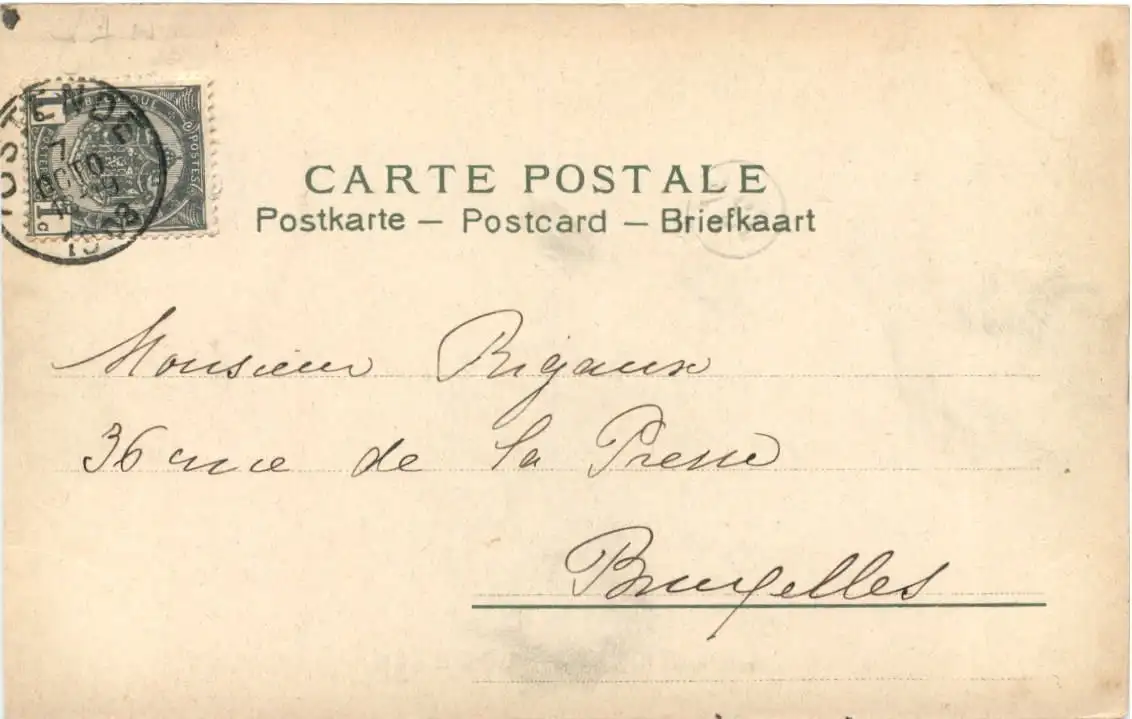 OSTENDE
7
OCTO
1903
BELGIQUE
POSTES
1c
1c
CARTE POSTALE
Postkarte – Postcard – Briefkaart
Monsieur Rigaux
36 rue de la Presse
Bruxelles